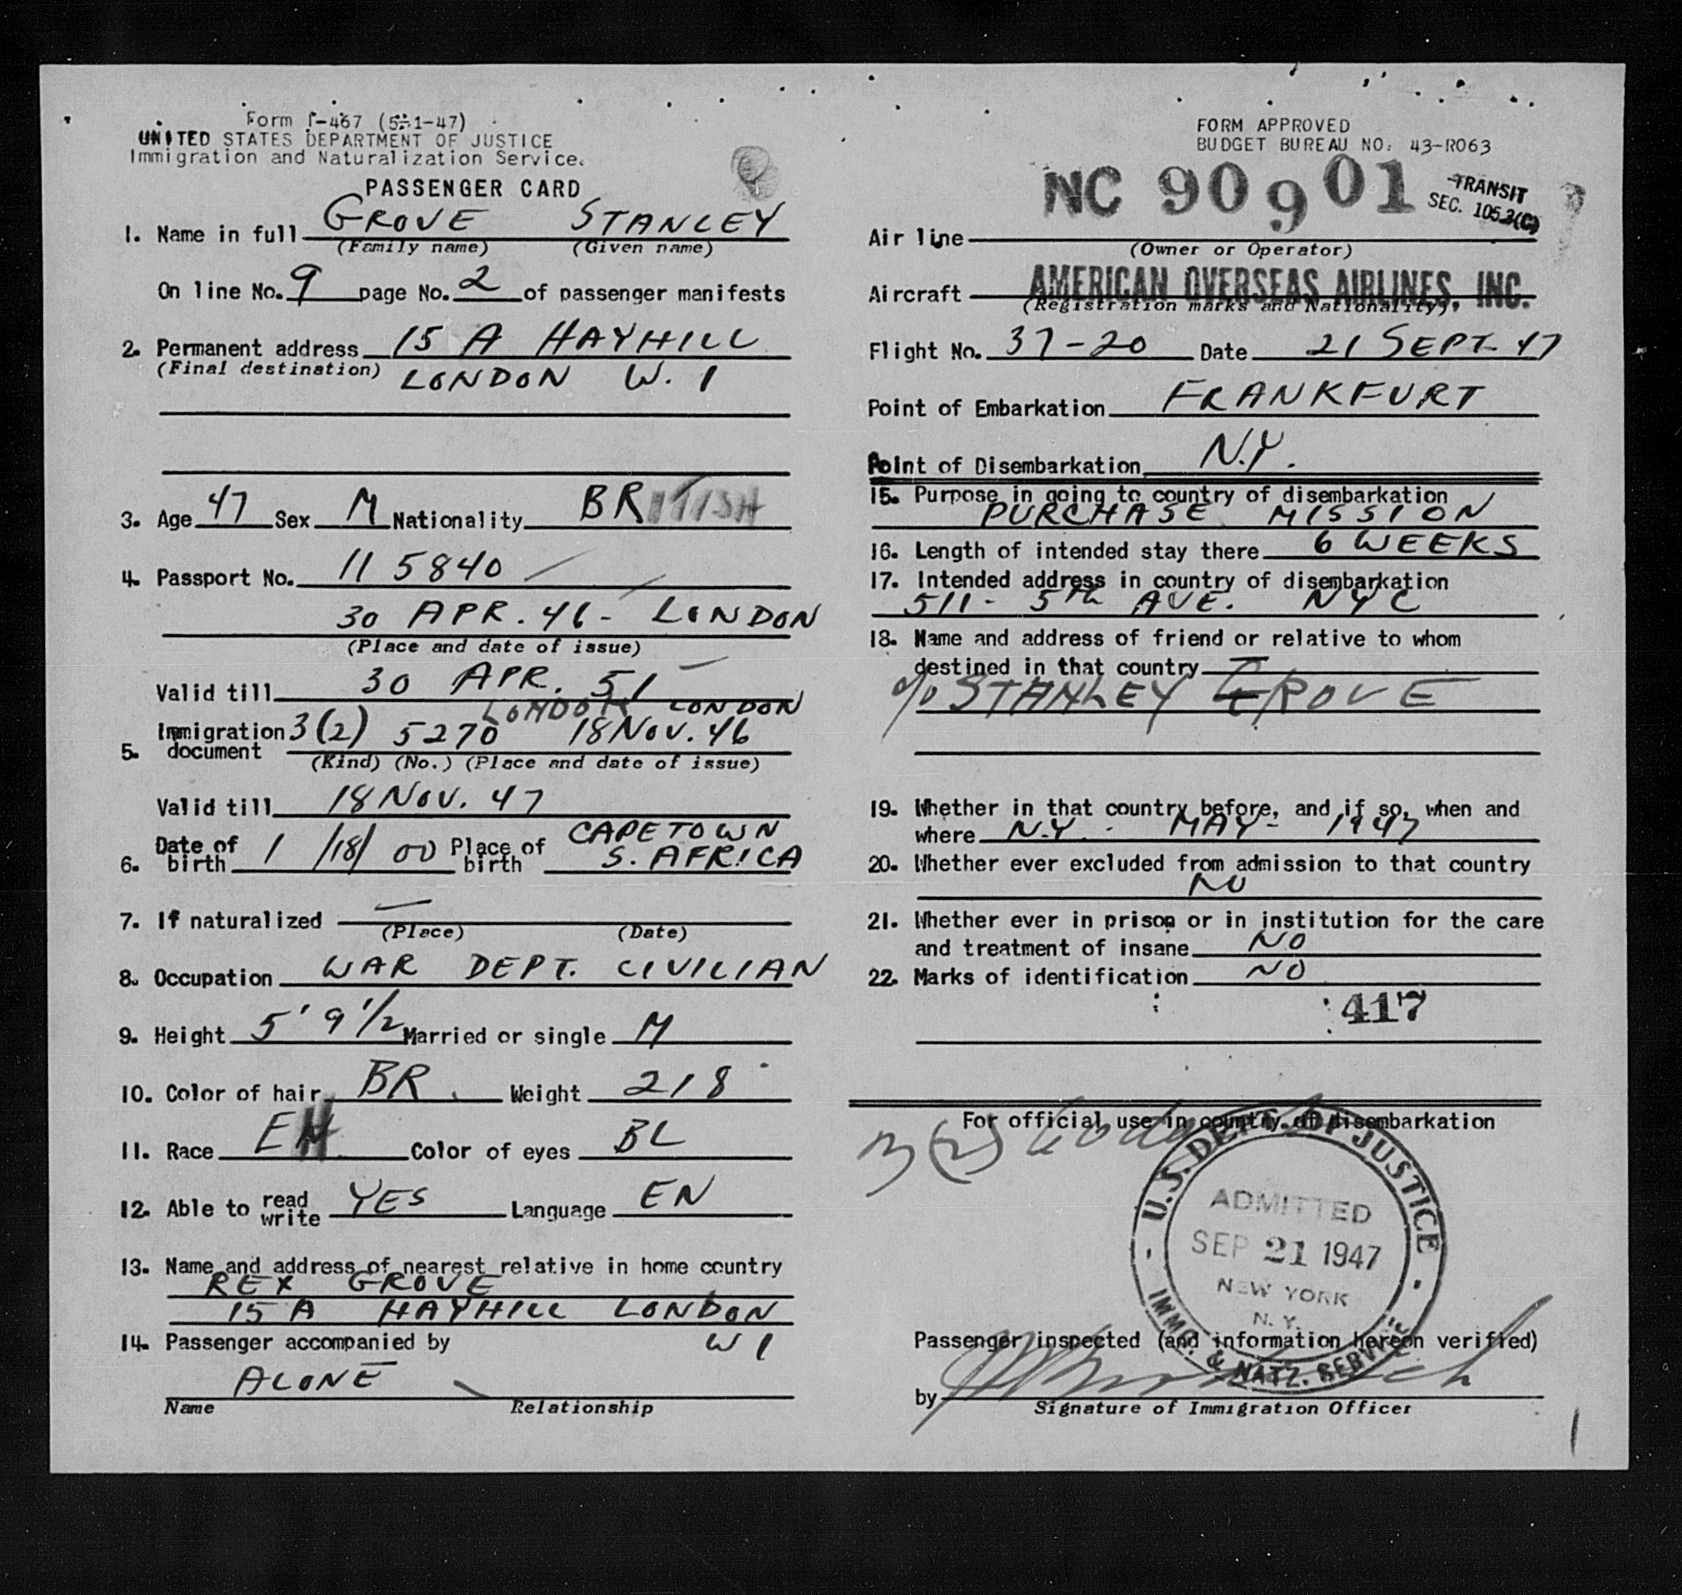 Form I-467 (5-1-47)
UNITED STATES DEPARTMENT OF JUSTICE
Immigration and Naturalization Service.
PASSENGER CARD
1. Name in full GROVE STANLEY
(Family name) (Given name)
On line No. 9 page No. 2 of passenger manifests
2. Permanent address 15 A HAYHILL
(Final destination) LONDON W. 1
3. Age 47 Sex M Nationality BRITISH
4. Passport No. 115840
30 APR. 46 - LONDON
(Place and date of issue)
Valid till 30 APR. 51
LONDON LONDON
5. Immigration document 3(2) 5270 18 NOV. 46
(Kind) (No.) (Place and date of issue)
Valid till 18 NOV. 47
6. Date of birth 1/18/00 Place of birth CAPETOWN
S. AFRICA
7. If naturalized —
(Place) (Date)
8. Occupation WAR DEPT. CIVILIAN
9. Height 5' 9 1/2 Married or single M
10. Color of hair BR. Weight 218
11. Race EN Color of eyes BL
12. Able to read write YES Language EN
13. Name and address of nearest relative in home country
REX GROVE
15 A HAYHILL LONDON
W 1
14. Passenger accompanied by
ALONE
Name Relationship
FORM APPROVED
BUDGET BUREAU NO. 43-R063
NC 90901
TRANSIT
SEC. 105.3(C)
Air line
(Owner or Operator)
Aircraft AMERICAN OVERSEAS AIRLINES, INC.
(Registration marks and Nationality)
Flight No. 37-20 Date 21 SEPT. 47
Point of Embarkation FRANKFURT
Point of Disembarkation N.Y.
15. Purpose in going to country of disembarkation
PURCHASE MISSION
16. Length of intended stay there 6 WEEKS
17. Intended address in country of disembarkation
511 - 5th AVE. NYC
18. Name and address of friend or relative to whom
destined in that country
% STANLEY GROVE
19. Whether in that country before, and if so, when and
where N.Y. - MAY - 1947
20. Whether ever excluded from admission to that country
NO
21. Whether ever in prison or in institution for the care
and treatment of insane NO
22. Marks of identification NO
417
For official use in country of disembarkation
3(2)
U.S. DEPT. OF JUSTICE
ADMITTED
SEP 21 1947
NEW YORK
N.Y.
IMMG. & NATZ. SERVICE
Passenger inspected (and information hereon verified)
by
Signature of Immigration Officer